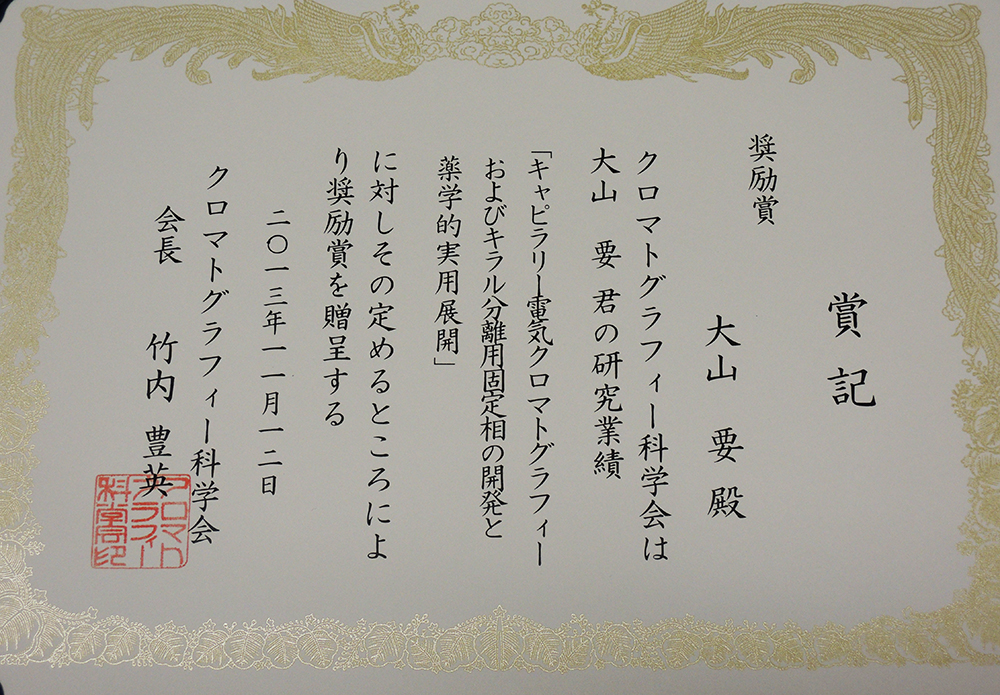 賞記
奨励賞
大山 要 殿
クロマトグラフィー科学会は
大山 要 君の研究業績
「キャピラリー電気クロマトグラフィー
およびキラル分離用固定相の開発と
薬学的実用展開」
に対しその定めるところによ
り奨励賞を贈呈する
二〇一三年一一月一二日
クロマトグラフィー科学会
会長 竹内 豊英
クロマト
グラフィー
科学会印